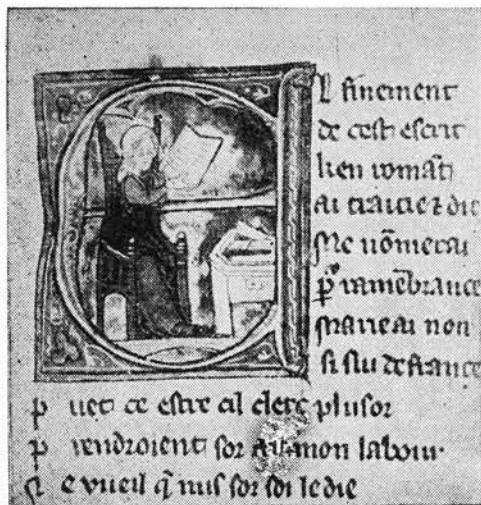 El finement
de cest escrit
ken romās
ai traitie ⁊ dit
Me nōmerai
p̄ ramēbrance
Marie ai non
si sui de france
p uet ce estre cil clerc plusor
p rendroient sor mon labour
N e vueil q̄ nus sor soi le die